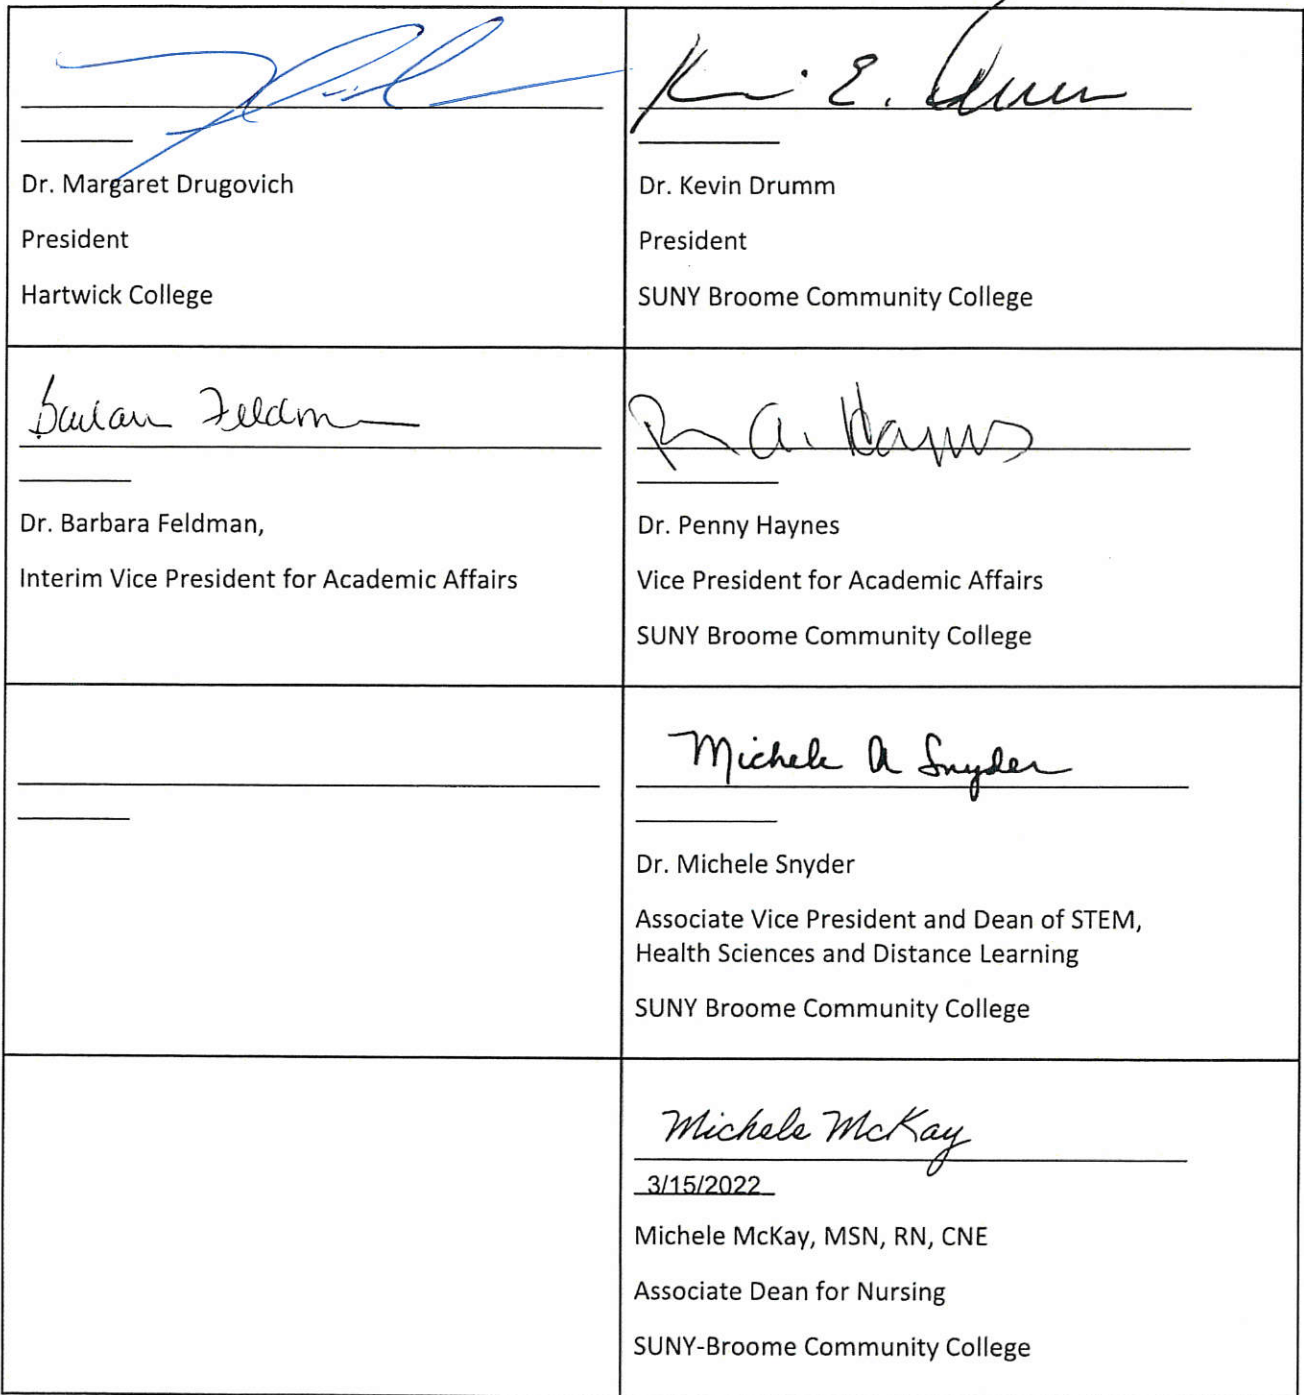 Dr. Margaret Drugovich
President
Hartwick College
Kevin E. Drumm
Dr. Kevin Drumm
President
SUNY Broome Community College
Barbara Feldman
Dr. Barbara Feldman,
Interim Vice President for Academic Affairs
P A. Haynes
Dr. Penny Haynes
Vice President for Academic Affairs
SUNY Broome Community College
Michele A Snyder
Dr. Michele Snyder
Associate Vice President and Dean of STEM,
Health Sciences and Distance Learning
SUNY Broome Community College
Michele McKay
3/15/2022
Michele McKay, MSN, RN, CNE
Associate Dean for Nursing
SUNY-Broome Community College